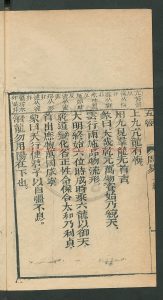 五經
周易
上九亢龍有悔
用九見羣龍无首吉
彖曰大哉乾元萬物資始乃統天
雲行雨施品物流形
大明終始六位時成時乘六龍以御天
乾道變化各正性命保合太和乃利貞
首出庶物萬國咸寧
象曰天行健君子以自彊不息
潛龍勿用陽在下也